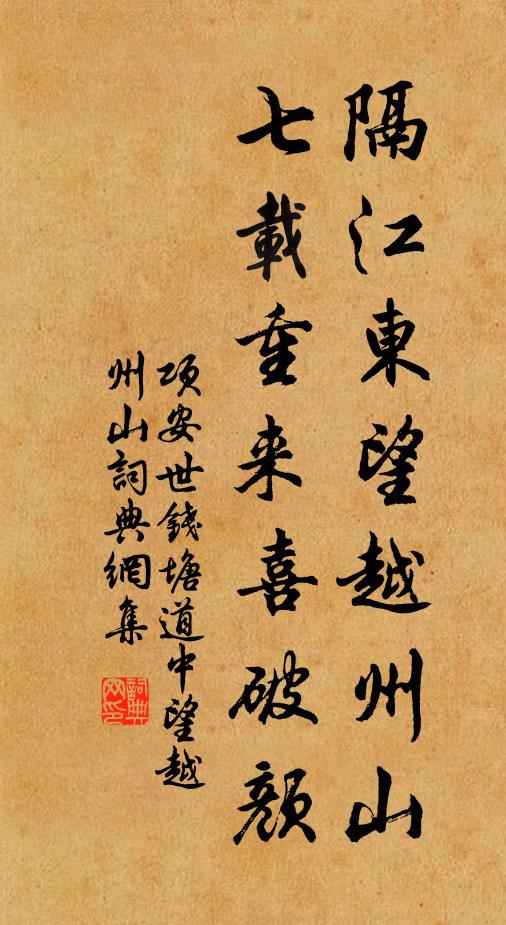 隔江東望越州山
七載重来喜破顔
項安世錢塘道中望越
州山詞典網集
詞典
网印